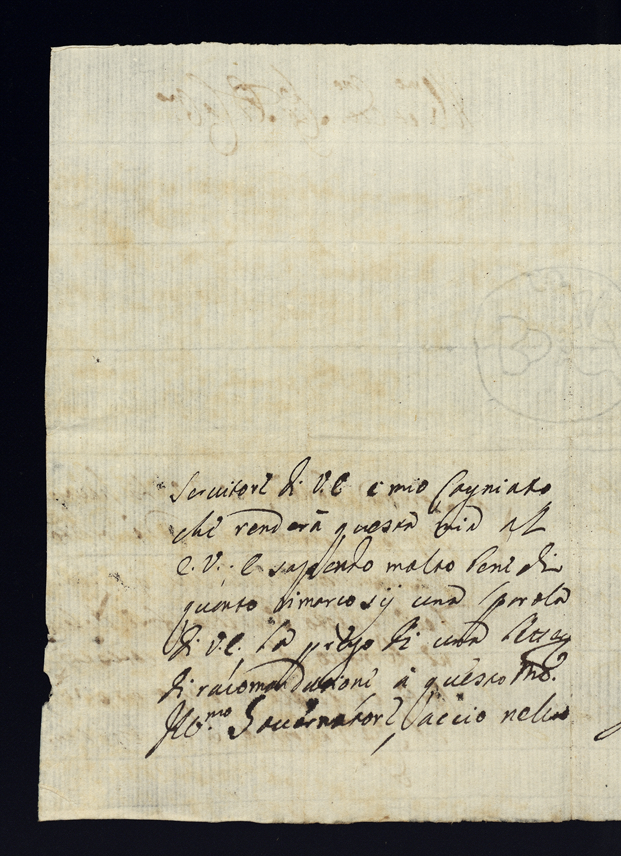 Servitore di V.E. e mio Cogniato
che renderà questa mia all
E.V.: E sapendo molto bene di
quanto rimarco sij una parola
di V.E. La prego di una lettera
di racomandatione à questo
Ill.mo Governatore, acciò nelle